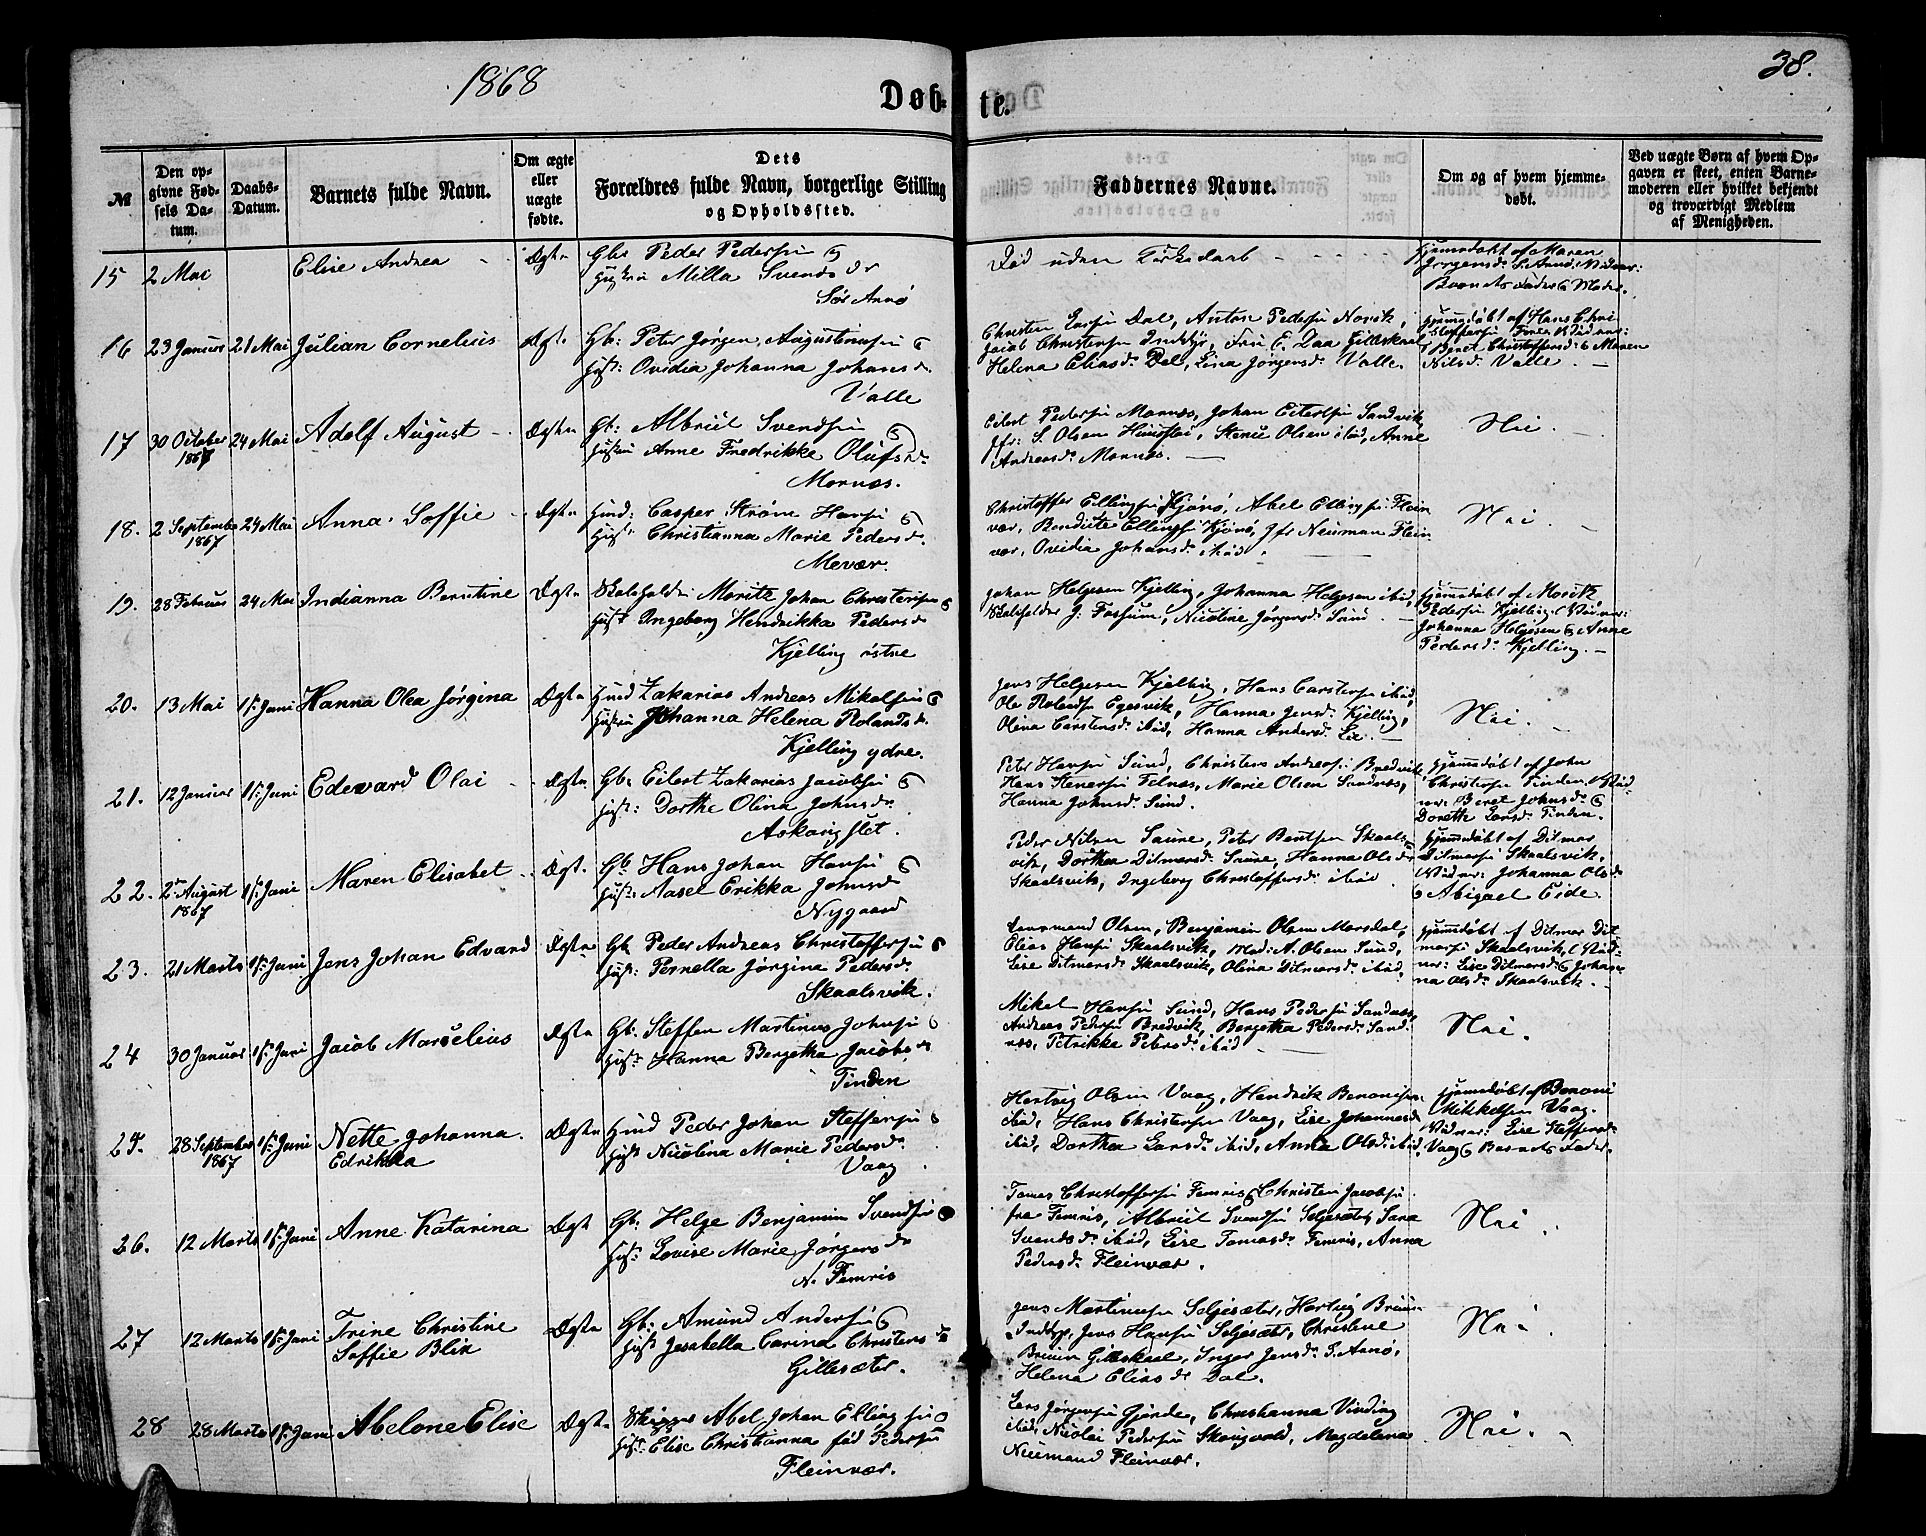 1868
38.
Døb-
te.
№
Den op-
givne Fød-
sels Da-
tum.
Daabs-
Datum.
Barnets fulde Navn.
Om ægte
eller
uægte
fødte.
Dets
Forældres fulde Navn, borgerlige Stilling
og Opholdssted.
Faddernes Navne.
Om og af hvem hjemme-
døbt.
Ved uægte Børn af hvem Op-
gaven er skeet, enten Barne-
moderen eller hvilket bekjendt
og troværdigt Medlem
af Menigheden.
15 2 Mai Elise Andrea Ægte Gbr Peder Pedersen &
Hustru Milla Svendsdr
Sør Arnø
Død uden Kirkedaab
Hjemmedøbt af Maren
Jørgensdr S. Arnø, Vidner:
Barnets Fader & Moder.
16 23 Januar 21 Mai Julian Cornelius Ægte Gb: Peter Jørgen Augustinusen &
Hust: Ovidia Johanna Johansdr
Valle
Christen Dal, Anton Pedersen Novik,
Jacob Christensen Inndyr, Fru Gilleskaal
Helena Eliasdr Dal, Lina Jørgensdr Valle.
Hjemmedøbt af Hans Chri
stoffersen Vidner:
Beret Christoffersdr & Maren
Nilsdr Valle.
17 30 October 24 Mai Adolf August Ægte Gb: Albriil Svendsen &
1867 Hustru Anne Fredrikke Olufsdr
Mornæs.
Eilert Pedersen Mornæs, Johan Eilertsen Sandvik,
Jfr: S. Olsen Olsen ibid, Anne
Andersdr Mornæs.
Nei
18. 2 September 24 Mai Anna Soffie Ægte Hmd: Casper Strøm Hansen &
1867 Hust: Christianna Marie Pedersdr
Mevær.
Christoffer Ellingsen Kjønø, Abel Ellingsen Flein
vær, Bendikte Ellingsen Kjønø, Jfr Neuman Flein
vær, Ovidia Johansdr ibid.
Nei
19. 28 Februar 24 Mai Indianna Berntine Ægte Moritz Johan Christensen &
Hust Ingeborg Hendrikka Pedersdr
Kjelling østre
Johan Helgesen Kjelling, Johanna Helgesen ibid,
J. Fossum, Nicoline Jørgensdr Sund
Hjemmedøbt af Moritz
Pedersen Kjelling, Vidner:
Johanna Helgesen & Anne
Pedersdr Kjelling.
20. 13 Mai 15 Juni Hanna Olea Jørgina Ægte Hmd Zakarias Andreas Mikalsen &
Hustru Johanna Helena Rolandsdr
Kjelling ydre.
Jens Helgesen Kjelling, Hans Carstensen ibid,
Ole Rolandsen Egesvik, Hanna Jensdr Kjelling,
Olina Carstensdr ibid, Hanna Andersdr Lie.
Nei.
21. 12 Januar 15 Juni Edevard Olai Ægte Gb: Eilert Zakarias Jacobsen &
Hust: Dorthe Olina Johnsdr
Peter Hansen Sund, Christen Andersen Bredvik,
Hans Stenersen Felnæs, Marie Olsen Sandnæs,
Hanna Johnsdr Sund.
Hjemmedøbt af John
Christensen Tinden, Vid-
ner: Beret Johnsdr &
Dorethe Larsdr Tinden.
22. 2 August 15 Juni Maren Elisabet Ægte Gb: Hans Johan Hansen &
1867 Hust: Aasel Erikka Johnsdr
Nygaard
Peder Nilsen Saure, Peter Berntsen Skaals-
vik, Dorthea Ditmarsdr Saure, Hanna Olsdr
Skaalsvik, Ingeborg Christoffersdr ibid
Hjemmedøbt af Ditmar
Ditmarsen Skaalsvik,
Vidner: Johanna Olsdr
& Abigael Eide.
23. 21 Marts 15 Juni Jens Johan Edvard Ægte Gb Peder Andreas Christoffersen &
Hust: Pernella Jørgina Pedersdr
Skaalsvik.
Olsen, Benjamin Olsen Morsdal,
Elias Hansen Skaalsvik, Mad: A. Olsen Sund,
Lise Ditmarsdr Skaalsvik, Olina Ditmarsdr ibid,
Hjemmedøbt af Ditmar Dit-
marsen Skaalsvik, Vid-
ner: Lise Ditmarsdr & Johan-
na Olsdr Skaalsvik.
24 30 Januar 15 Juni Jacob Marselius Ægte Gb: Steffen Martinus Johnsen &
Hust: Hanna Bergetha Jacobsdr
Tinden
Mikel Hansen Sund, Hans Pedersen Sandnæs,
Andreas Pedersen Bredvik, Bergetha Pedersdr Sand-
næs, Petrikka Petersdr ibid
Nei.
25. 28 September 15 Juni Nette Johanna Ægte Hmd Peder Johan Steffensen &
1867 Edrikka Hust Nicolina Marie Pedersdr
Vaag
Hertvig Olsen Vaag, Hendrik Benonisen
ibid, Hans Christensen Vaag, Lise Johannesdr
ibid, Dorthea Larsdr ibid, Anna Olsdr ibid.
Hjemmedøbt af Benoni
Mikkelsen Vaag.
Vidner: Lise Steffensdr
Vaag & Barnets Fader.
26. 12 Marts 15 Juni Anne Katarina Ægte Gb: Helge Benjamin Svendsen &
Hust: Lovise Marie Jørgensdr
N. Femris
Tomas Christoffersen Femris & Christen Jacobsen
fra Femris, Albriil Svendsen Seljesæter, Sara
Svendsdr ibid, Lise Tomasdr Femris, Anna
Pedersdr Fleinvær.
Nei
27 12 Marts 15 Juni Trine Christine Ægte Gb: Amund Andersen &
Soffie Blix Hust Jesabella Carina Christensdr
Gillesæter.
Jens Martinusen Seljesæter, Hartvig Bruun
Indtyr, Jens Hansen Seljesæter, Christene
Bruun Gilleskaal, Inger Jensdr S. Arnø,
Helena Eliasdr Dal.
Nei
28 28 Marts 15 Juni Abelone Elise Ægte Skipper Abel Johan Ellingsen &
Hust: Elise Christianna fød Pedersen
Fleinvær.
Lars Jørgensen Gjerde, Christianna Vinding
ibid, Nicolai Pedersen Skongvold, Magdalena
Neumand Fleinvær.
Nei.